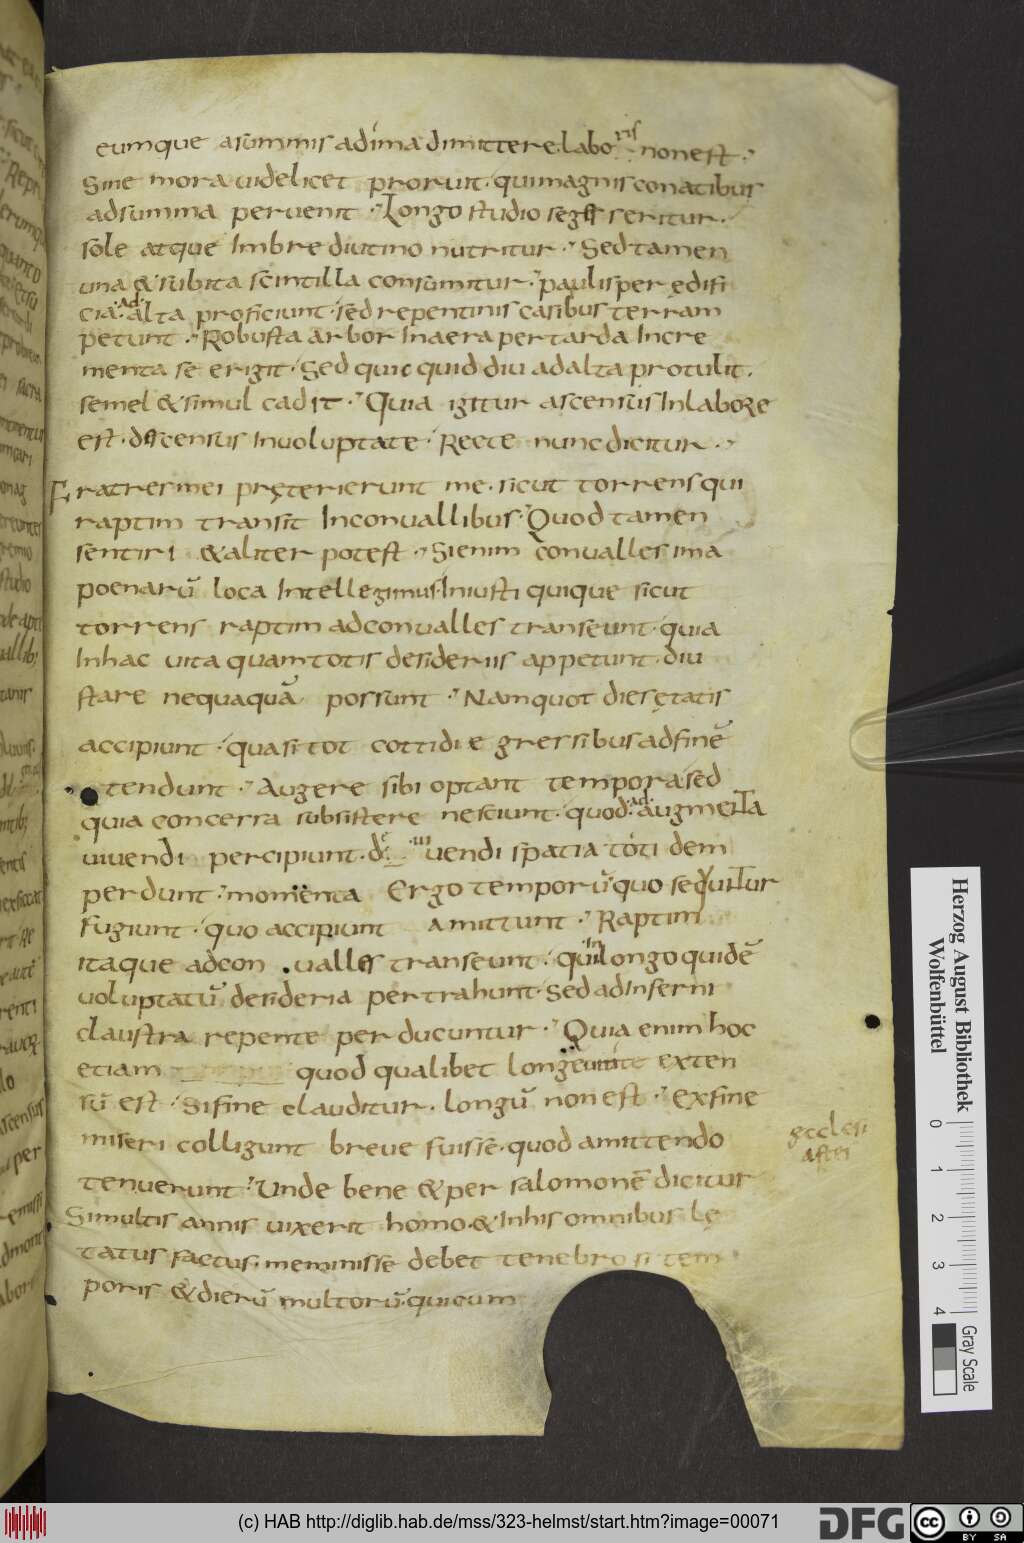 eumque asummis adíma dimittere labo ris non est.
Sine mora uidelicet proruit. qui magnis conatibus
adsumma peruenit. Longo studio seges seritur.
sole atque Imbre diutino nutritur. Sed tamen
una & subita scintilla consumitur. paulis per edifi
cia ad alta proficiunt. sed repentinis casibus terram
petunt. Robusta arbor In aera per tarda Incre
menta se erigit. Sed quicquid diu ad alta protulit.
semel & simul cadIT. Quia igitur ascensus In labore
est. descensus In uoluptate. Recte nunc dicitur.
Fratres mei pręterierunt me. sicut torrens qui
raptim transit In conuallibus. Quod tamen
sentiri & aliter potest. Si enim conualles ima
poenarū loca Intellegimus. Iniusti quique sicut
torrens raptim adconualles transeunt. quia
In hac uita quam totis desideriis appetunt. diu
stare nequaquā possunt. Nam quot dies ętatis
accipiunt. quasi tot cottidie gressibus ad finē
tendunt. Augere sibi optant tempora sed
quia concessa subsistere nesciunt. quod ad augmenta
uiuendi percipiunt. de uiuendi spatia toti dem
perdunt. momenta Ergo temporū quo sequntur
fugiunt. quo accipiunt amittunt. Raptim
itaque adcon ualles transeunt. qui in longo quidē
uoluptatū desideria pertrahunt. Sed ad Inferni
claustra repente per ducuntur. Quia enim hoc
etiam quod qualibet longeuitate exten
sū est. Si fine clauditur. longū non est. Ex fine
miseri colligunt breue fuisse. quod amittendo
tenuerunt. Unde bene & per salomonē dicitur
Si multis annis uixerit homo. & In his omnibus lę
tatus factus. meminisse debet tenebrosi tem
poris & dierū multorū. qui cum
ęcclesi
astes
Herzog August Bibliothek
Wolfenbüttel
0 1 2 3 4
Gray Scale
(c) HAB http://diglib.hab.de/mss/323-helmst/start.htm?image=00071
DFG
cc BY SA